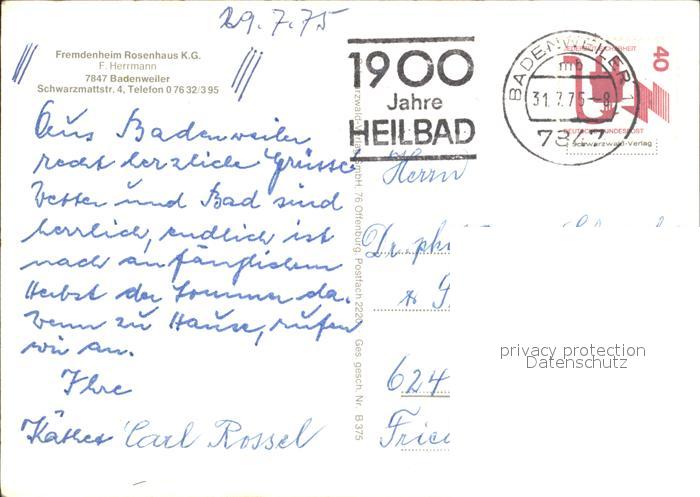 29.7.75
Fremdenheim Rosenhaus K.G.
F. Herrmann
7847 Badenweiler
Schwarzmattstr. 4, Telefon 0 76 32/3 95
Aus Badenweiler
recht herzliche Grüsse
Wetter und Bad sind
herrlich, endlich ist
nach anfänglichem
Herbst der Sommer da.
Wenn zu Hause, rufen
wir an.
Ihre
Käthe Carl Rossel
1900
Jahre
HEILBAD
BADENWEILER 1
mb
31.7.75-8
7847
JEDERZEIT SICHERHEIT
40
DEUTSCHE BUNDESPOST
Schwarzwald-Verlag
Schwarzwald-Verlag GmbH, 76 Offenburg, Postfach 2220 Ges. gesch. Nr. B 375
Herrn
Dr. phi
624
Frie
privacy protection
Datenschutz